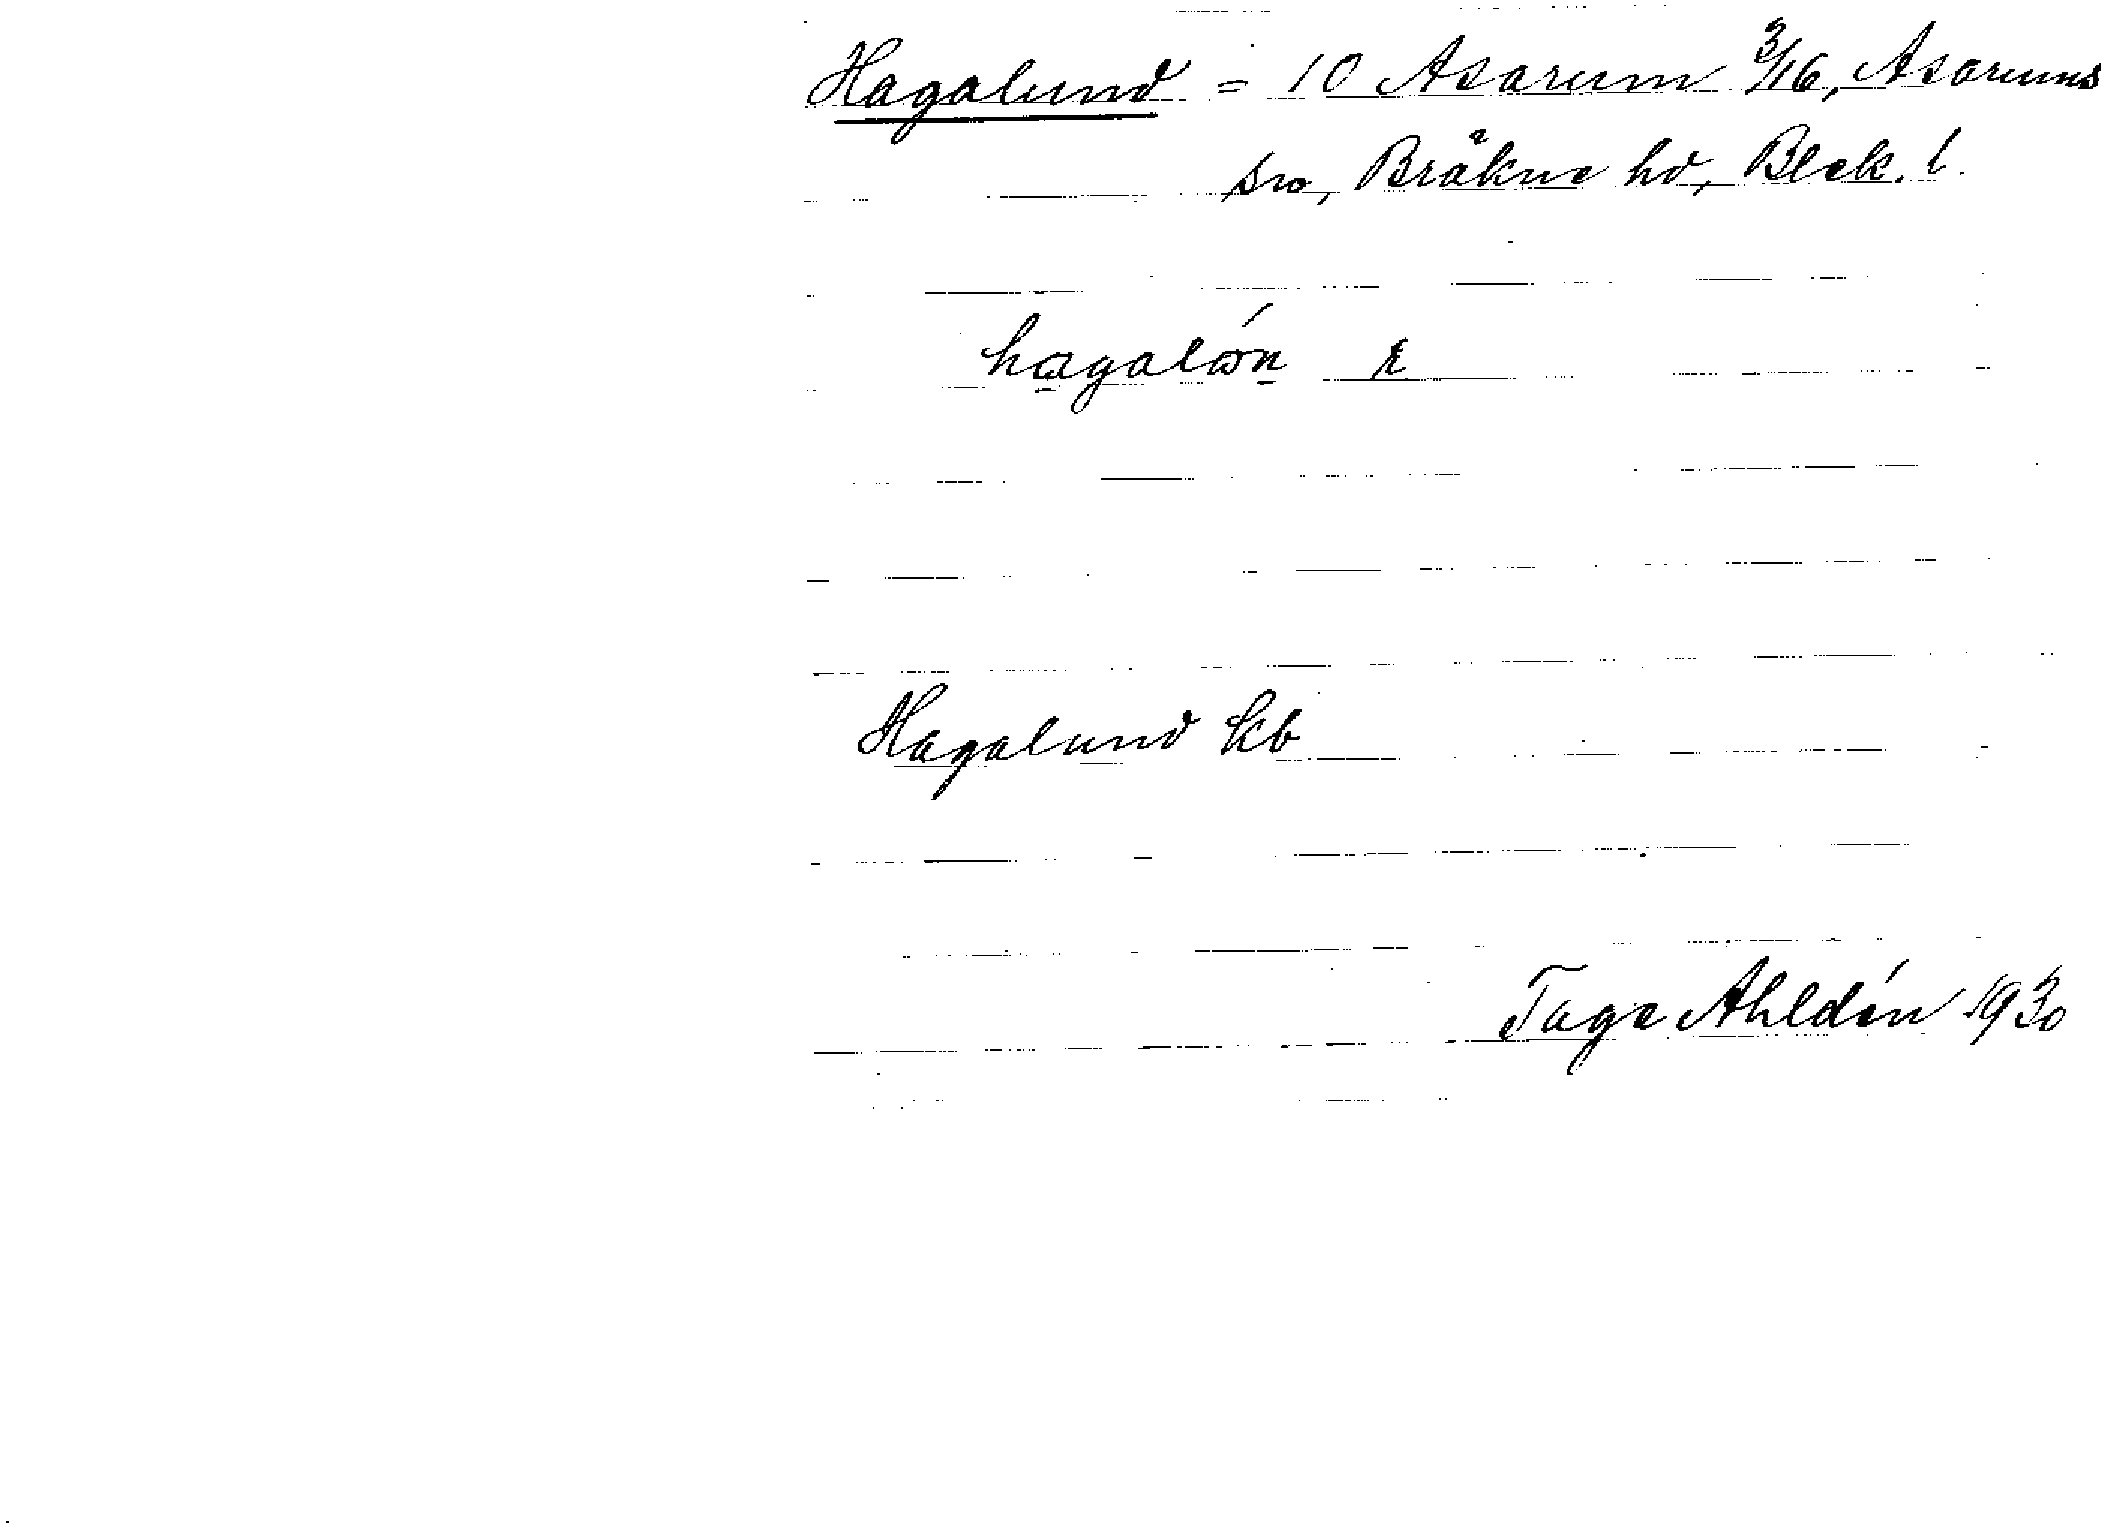 Hagalund = 10 Asarum 3/16, Asarums
sn, Bräkne hd, Blek. l.
hagalón
Hagalund kb
Tage Ahldén 1930